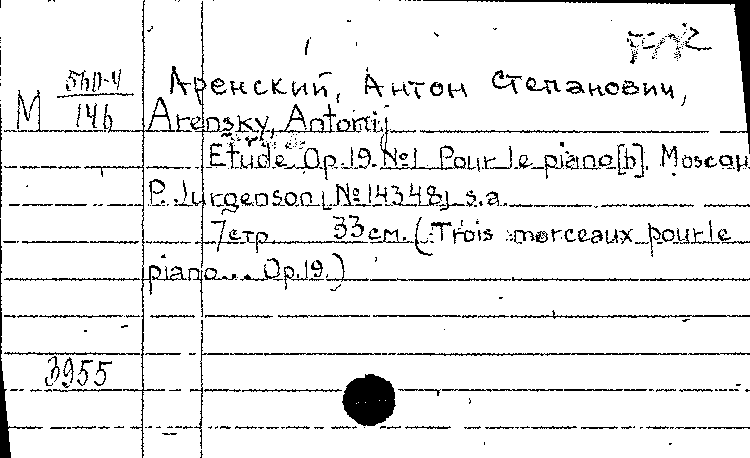 М 560-4/146
Аренский, Антон Степанович,
Arensky, Antonij
Etude Op.19. №1 Pour le piano[h]. Moscou
P. Jurgenson [№14348] s.a.
7стр. 33см. (Trois morceaux pour le
piano... Op.19.)
3955